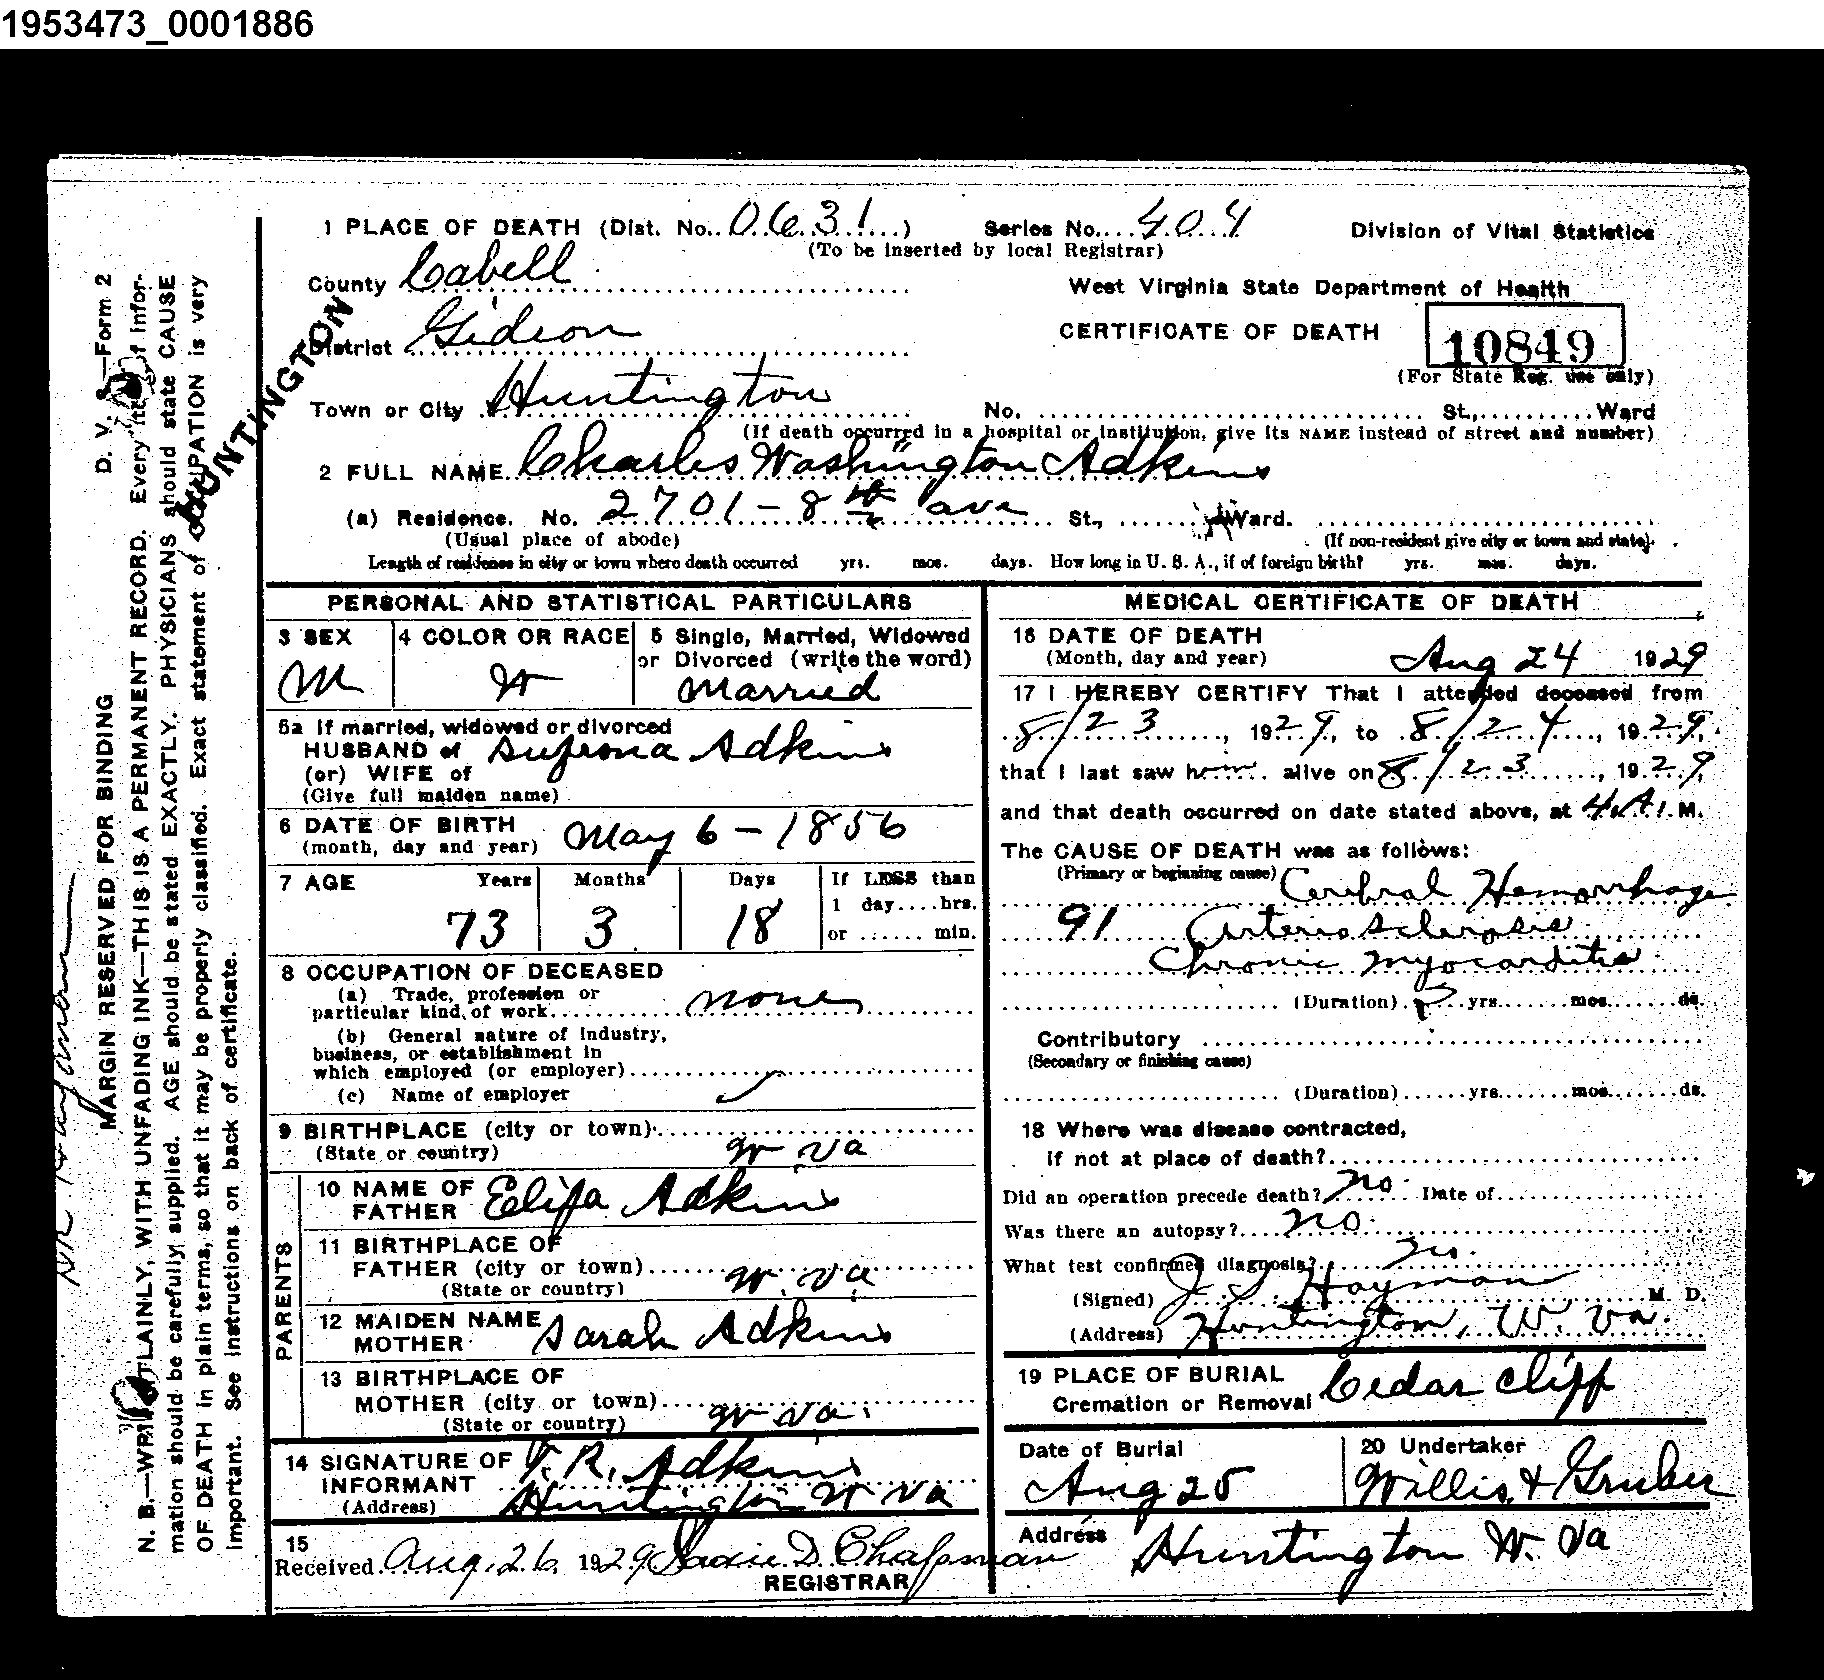 1953473_0001886
1 PLACE OF DEATH (Dist. No. 0631) Series No. 404 Division of Vital Statistics
(To be inserted by local Registrar)
County Cabell
West Virginia State Department of Health
District Gideon
CERTIFICATE OF DEATH 10849
(For State Reg. use only)
HUNTINGTON
Town or City Huntington No. St., Ward
(If death occurred in a hospital or institution, give its NAME instead of street and number)
2 FULL NAME Charles Washington Adkins
(a) Residence. No. 2701-8th ave St., Ward.
(Usual place of abode) (If non-resident give city or town and state).
Length of residence in city or town where death occurred yrs. mos. days. How long in U. S. A., if of foreign birth? yrs. mos. days.
PERSONAL AND STATISTICAL PARTICULARS
3 SEX 4 COLOR OR RACE 5 Single, Married, Widowed
or Divorced (write the word)
M W Married
5a If married, widowed or divorced
HUSBAND of Adkins
(or) WIFE of
(Give full maiden name)
6 DATE OF BIRTH May 6-1856
(month, day and year)
7 AGE Years Months Days If LESS than
1 day....hrs.
73 3 18 or ...... min.
8 OCCUPATION OF DECEASED
(a) Trade, profession or
particular kind of work none
(b) General nature of industry,
business, or establishment in
which employed (or employer)
(c) Name of employer
9 BIRTHPLACE (city or town)
(State or country) W Va
PARENTS
10 NAME OF
FATHER Adkins
11 BIRTHPLACE OF
FATHER (city or town)
(State or country) W. Va
12 MAIDEN NAME
MOTHER Sarah Adkins
13 BIRTHPLACE OF
MOTHER (city or town)
(State or country) W Va.
14 SIGNATURE OF
INFORMANT R. Adkins
(Address) Huntington W Va
15
Received Aug. 26 1929 Sadie D. Chapman
REGISTRAR
MEDICAL CERTIFICATE OF DEATH
16 DATE OF DEATH
(Month, day and year) Aug 24 1929
17 I HEREBY CERTIFY That I attended deceased from
8/23, 1929, to 8/24, 1929,
that I last saw him alive on 8/23, 1929,
and that death occurred on date stated above, at 4 A.M.
The CAUSE OF DEATH was as follows:
(Primary or beginning cause) Cerebral Hemorrhage
91 Arterio sclerosis
Chronic myocarditis
(Duration) yrs. mos. ds.
Contributory
(Secondary or finishing cause)
(Duration) yrs. mos. ds.
18 Where was disease contracted,
if not at place of death?
Did an operation precede death? No Date of
Was there an autopsy? No.
What test confirmed diagnosis? no.
(Signed) Hayman M. D.
(Address) Huntington, W. Va.
19 PLACE OF BURIAL
Cremation or Removal Cedar Cliff
Date of Burial 20 Undertaker
Aug 25 Willis & Gruber
Address Huntington W. Va
D. V. S.—Form 2
MARGIN RESERVED FOR BINDING
N. B.—WRITE PLAINLY, WITH UNFADING INK—THIS IS A PERMANENT RECORD. Every item of infor-
mation should be carefully supplied. AGE should be stated EXACTLY. PHYSICIANS should state CAUSE
OF DEATH in plain terms, so that it may be properly classified. Exact statement of OCCUPATION is very
important. See instructions on back of certificate.
Dr Hayman